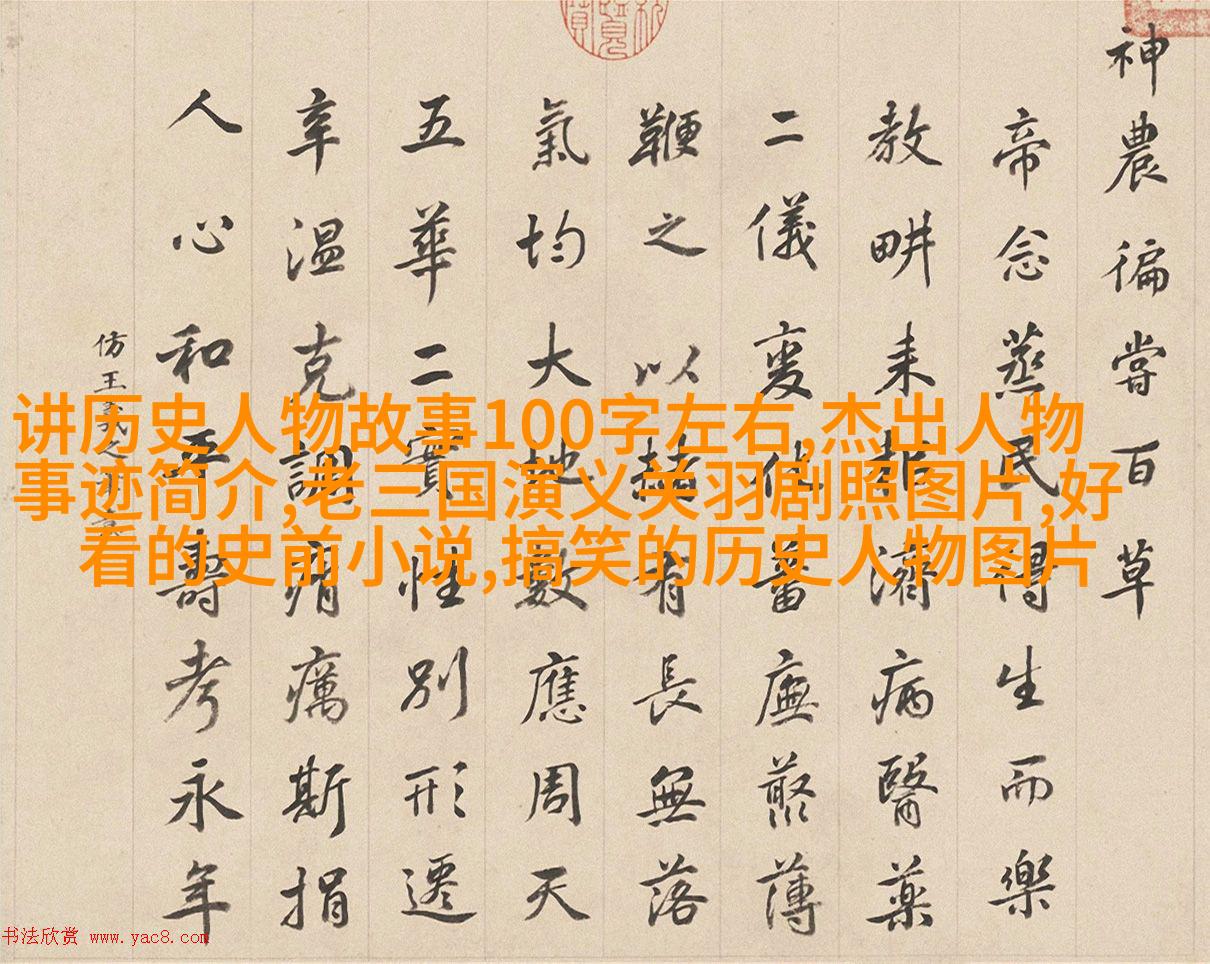 神農徧嘗百草
帝念蒸民得生而樂
教畊耒耜濟病醫藥
二儀變化蕃廡藂薄
鞭之以赭有長無落
氣均大地數應周天
五華二實性別形遷
辛温克調痟癘斯捐
人心和平壽考永年
仿王羲之
讲历史人物故事100字左右,杰出人物
事迹简介,老三国演义关羽剧照图片,好
看的史前小说,搞笑的历史人物图片
书法欣赏 www.yac8.com